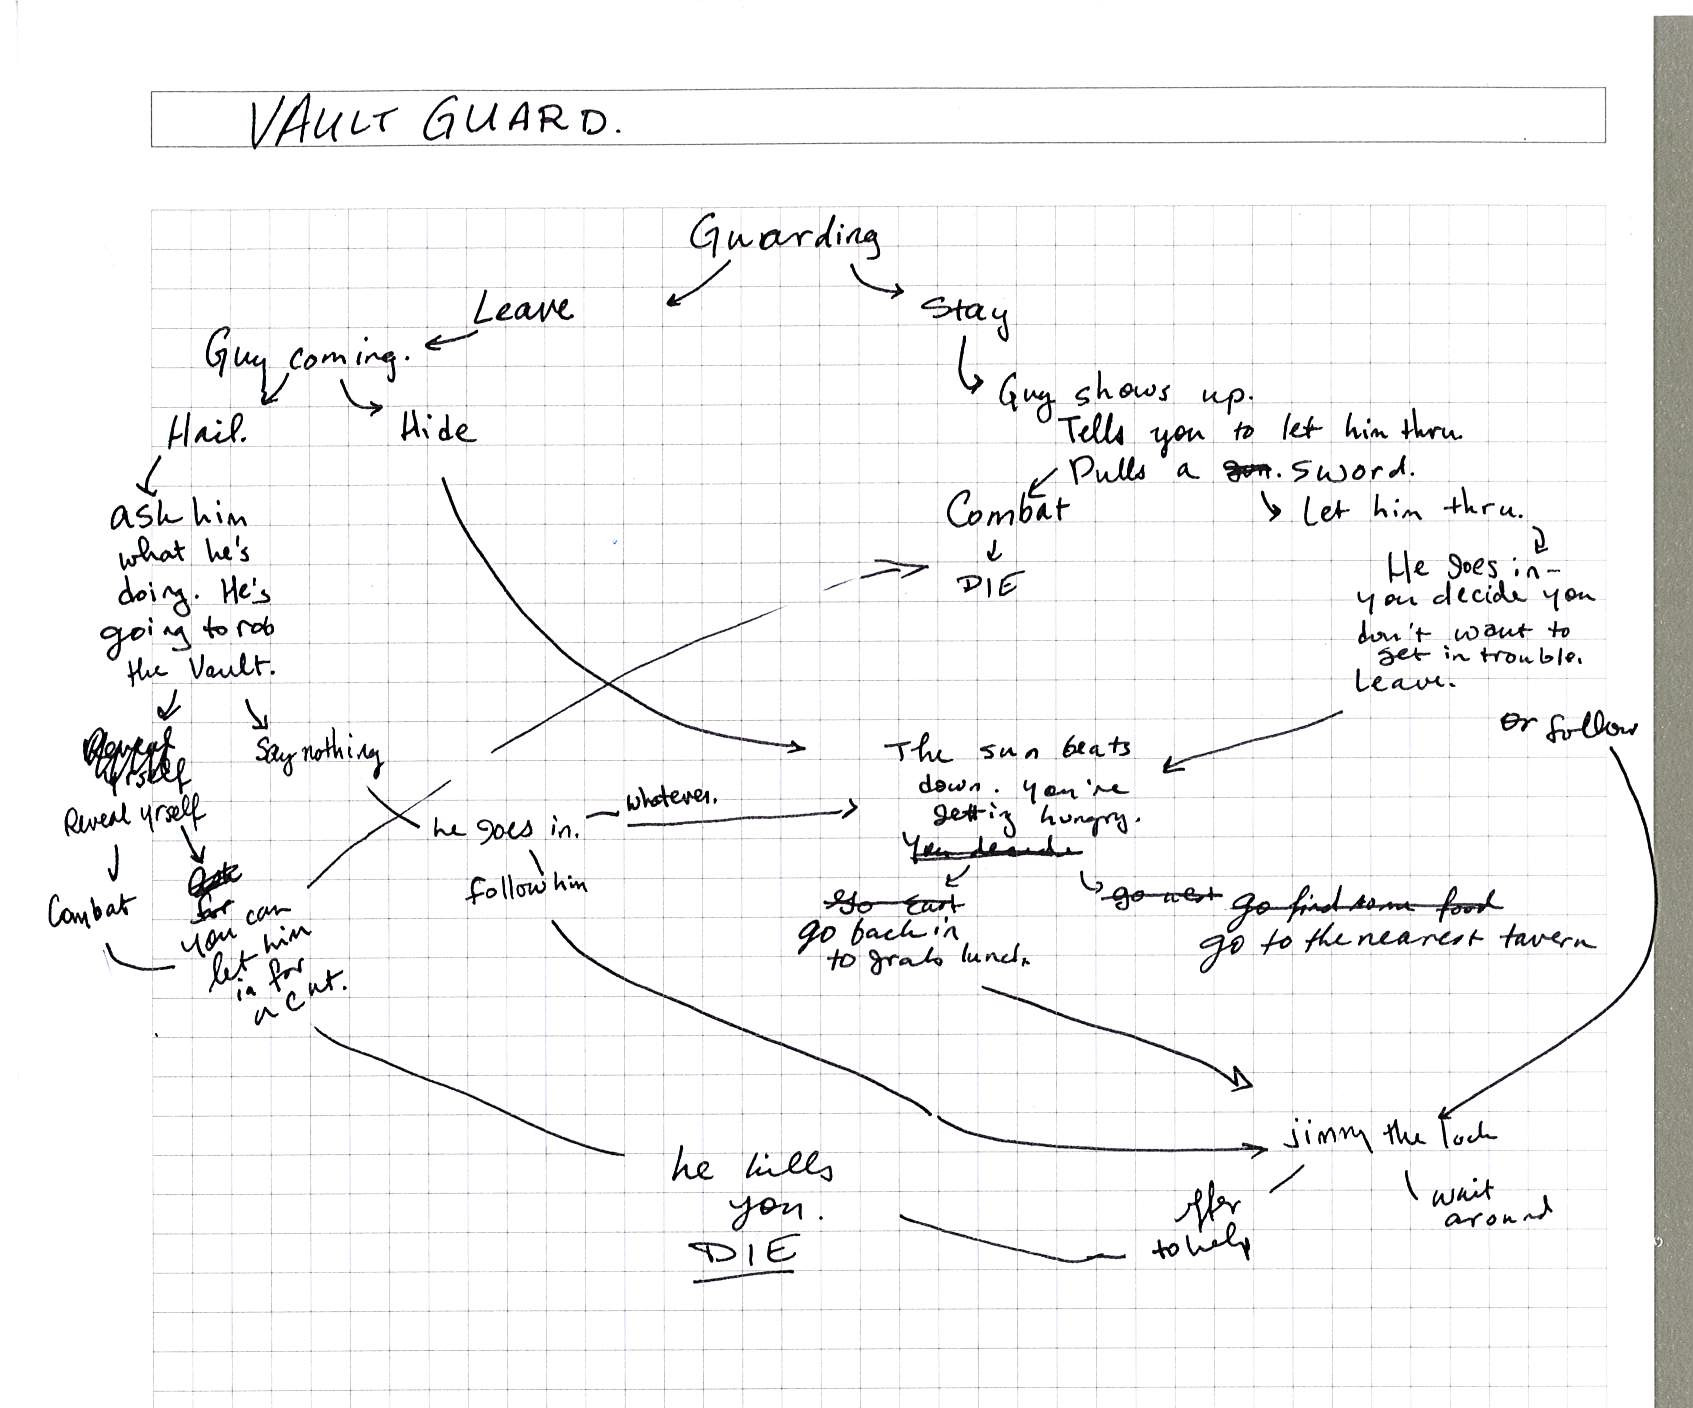 VAULT GUARD.
Guarding
Leave
Stay
Guy coming.
Guy shows up.
Tells you to let him thru.
Pulls a gun. sword.
Hail.
Hide
Combat
Let him thru.
DIE
ask him
what he's
doing. He's
going to rob
the Vault.
He goes in-
you decide you
don't want to
get in trouble.
Leave.
or follow
Reveal
yrself
Reveal yrself
Say nothing
he goes in.
whatever.
follow him
The sun beats
down. You're
gettig hungry.
You decide
go east
go back in
to grab lunch.
go west go find some food
go to the nearest tavern
Combat
for
you can
let him
in for
a cut.
he kills
you.
DIE
jimmy the lock
offer
to help
wait
around